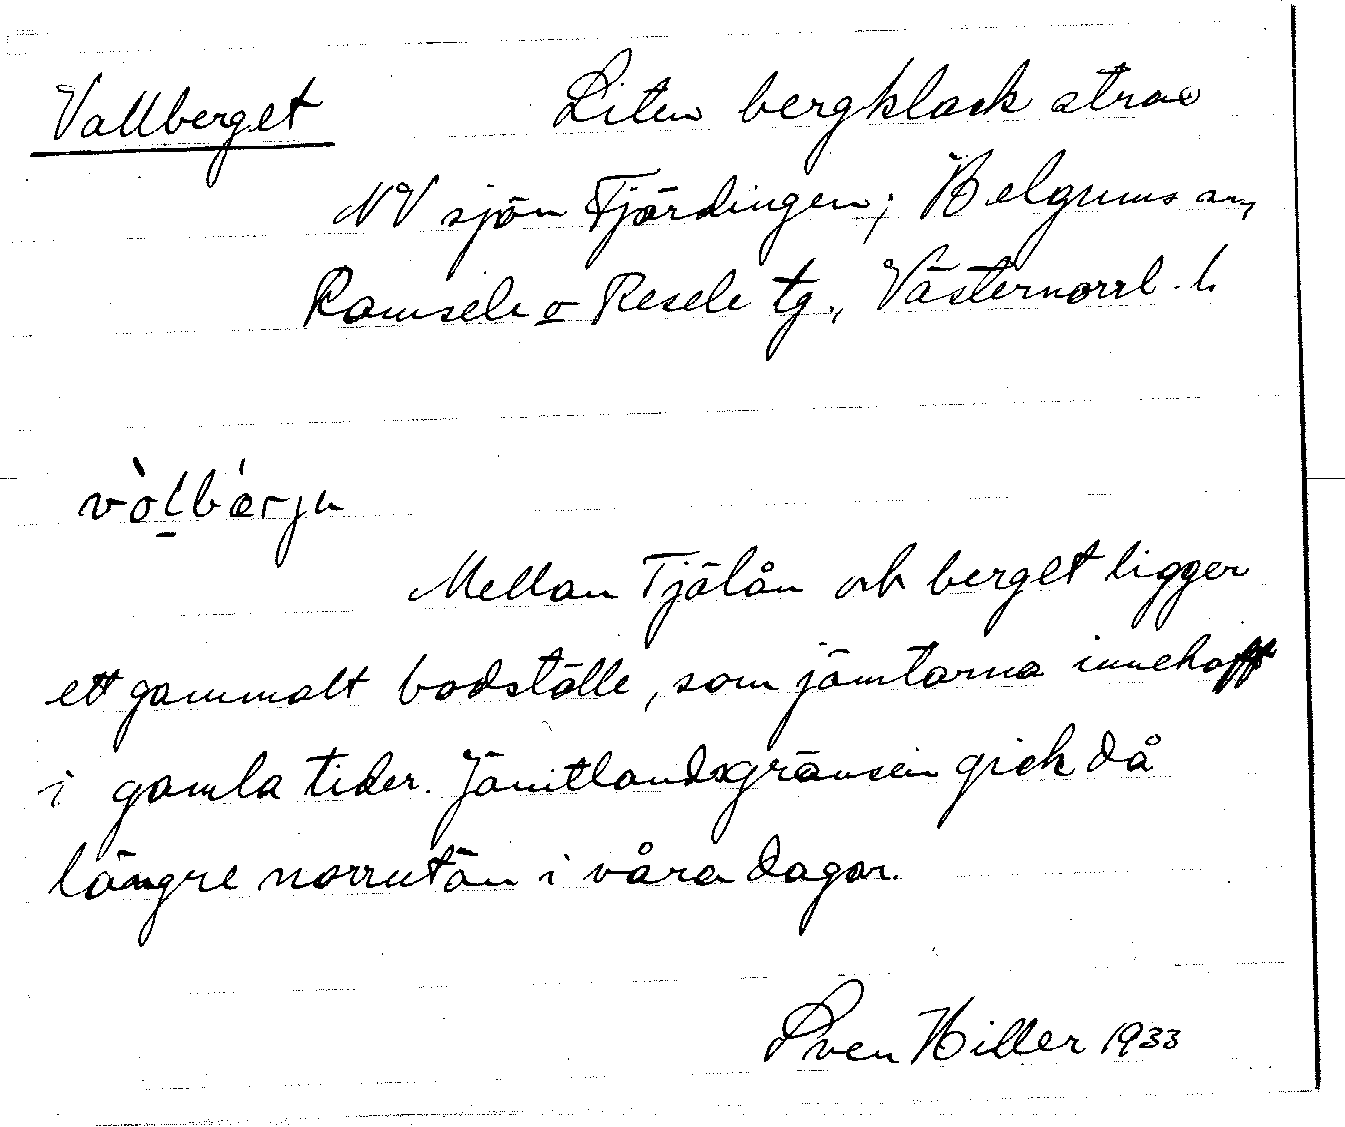 Vallberget Liten bergklack strax
NV sjön Fjärdingen; Helgums sn,
Ramsele o Resele tg., Västernorrl. l.
vòlbærju
Mellan Fjälån och berget ligger
ett gammalt bodställe, som jämtarna innehaft
i gamla tider. Jämtlandsgränsen gick då
längre norrut än i våra dagar.
Sven Hiller 1933